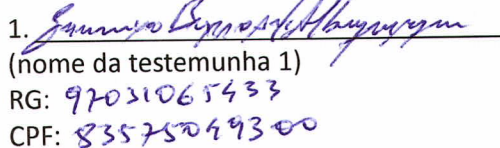 1.
(nome da testemunha 1)
RG: 97031065433
CPF: 83575049300